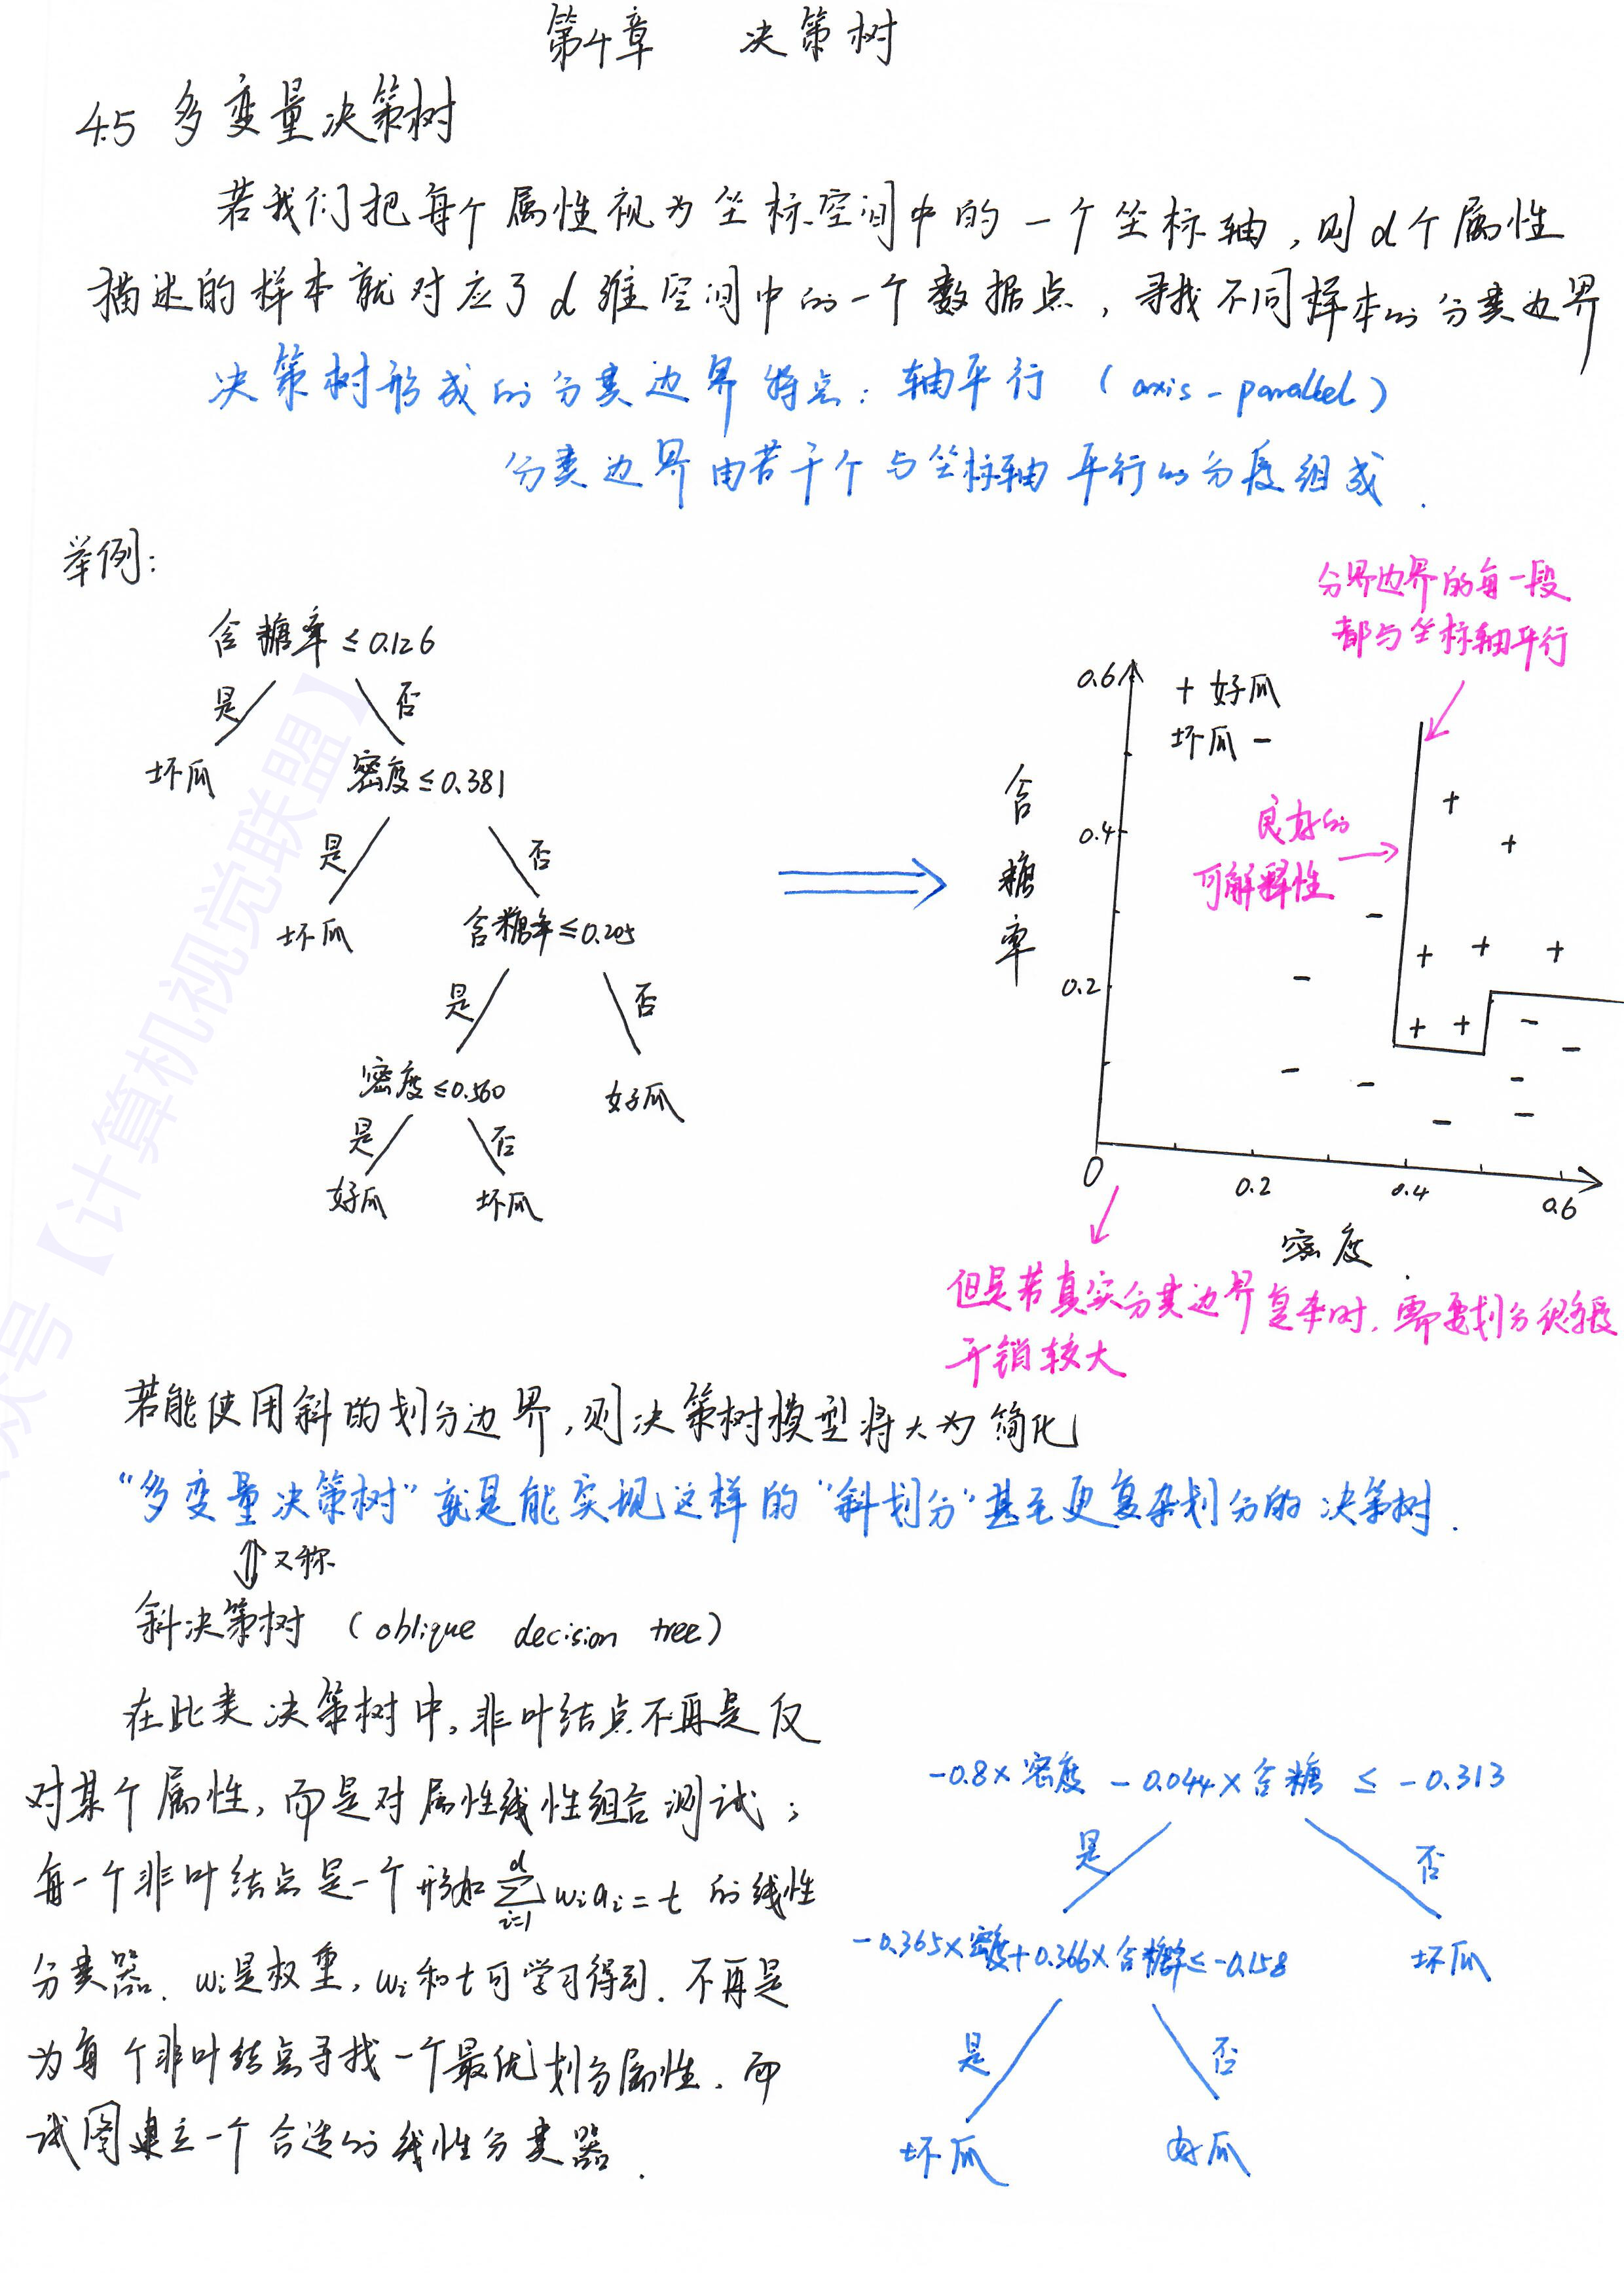 第4章 决策树
4.5 多变量决策树
若我们把每个属性视为坐标空间中的一个坐标轴,则d个属性
描述的样本就对应了d维空间中的一个数据点,寻找不同样本的分类边界
决策树形成的分类边界特点:轴平行 (axis-parallel)
分类边界由若干个与坐标轴平行的分段组成.
举例:
含糖率≤0.126
是
否
坏瓜
密度≤0.381
是
否
坏瓜
含糖率≤0.205
是
否
密度≤0.560
好瓜
是
否
好瓜
坏瓜
分界边界的每一段
都与坐标轴平行
0.6
+ 好瓜
坏瓜 -
含糖率
良好的
可解释性
0.4
0.2
0
0.2
0.4
0.6
密度
但是若真实分类边界复杂时,需要划分很多段
开销较大
若能使用斜的划分边界,则决策树模型将大为简化
“多变量决策树”就是能实现这样的“斜划分”甚至更复杂划分的决策树.
⇕又称
斜决策树 (oblique decision tree)
在此类决策树中,非叶结点不再是仅
对某个属性,而是对属性线性组合测试;
每一个非叶结点是一个形如 ∑_{i=1}^{d} wᵢaᵢ=t 的线性
分类器. wᵢ是权重,wᵢ和t可学习得到.不再是
为每个非叶结点寻找一个最优划分属性.而
试图建立一个合适的线性分类器.
-0.8×密度 -0.044×含糖 ≤ -0.313
是
否
-0.365×密度+0.366×含糖率≤-0.158
坏瓜
是
否
坏瓜
好瓜
众号【计算机视觉联盟】